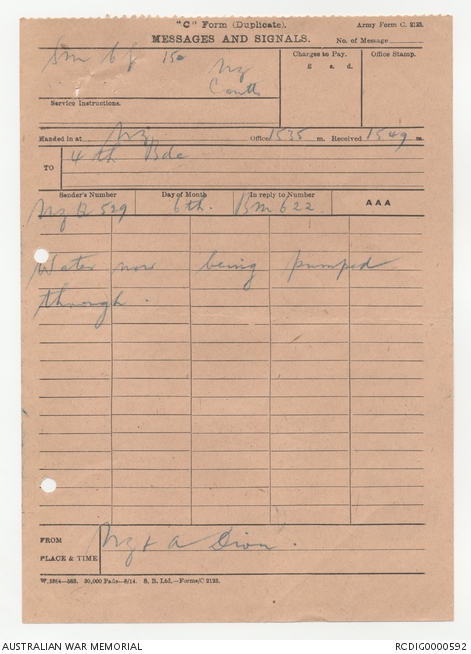 "C" Form (Duplicate). Army Form C. 2123.
MESSAGES AND SIGNALS. No. of Message
Sm 150 Charges to Pay. Office Stamp.
£ s. d.
NZ
Service Instructions.
Handed in at NZ Office 1535 m. Received 1549 m.
TO 4th Bde
Sender's Number Day of Month In reply to Number AAA
NZ Q 529 6th. BM 622
Water now being pumped
through.
FROM NZ & A Divn.
PLACE & TIME
W. 5864—583. 30,000 Pads—8/14. S. R. Ltd.—Forms/C 2123.
AUSTRALIAN WAR MEMORIAL RCDIG0000592